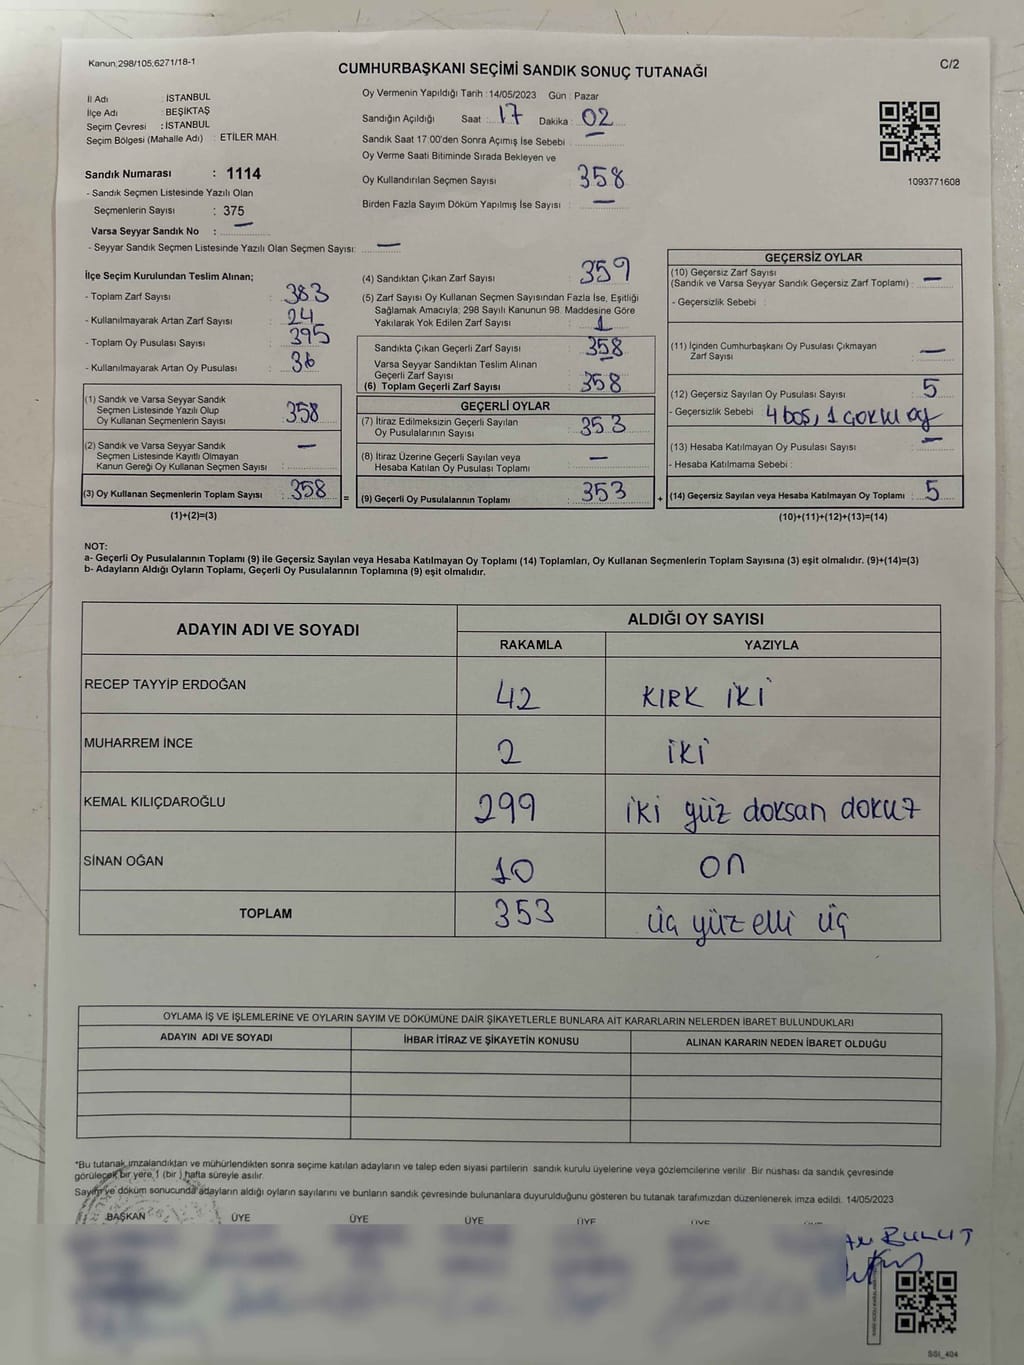 Kanun;298/105;6271/18-1
C/2
CUMHURBAŞKANI SEÇİMİ SANDIK SONUÇ TUTANAĞI
İl Adı : İSTANBUL
İlçe Adı : BEŞİKTAŞ
Seçim Çevresi : İSTANBUL
Seçim Bölgesi (Mahalle Adı) : ETİLER MAH.
Sandık Numarası : 1114
- Sandık Seçmen Listesinde Yazılı Olan
Seçmenlerin Sayısı : 375
Varsa Seyyar Sandık No : —
- Seyyar Sandık Seçmen Listesinde Yazılı Olan Seçmen Sayısı: —
Oy Vermenin Yapıldığı Tarih : 14/05/2023 Gün : Pazar
Sandığın Açıldığı Saat : 17 Dakika : 02
Sandık Saat 17:00'den Sonra Açımış İse Sebebi : —
Oy Verme Saati Bitiminde Sırada Bekleyen ve
Oy Kullandırılan Seçmen Sayısı : 358
Birden Fazla Sayım Döküm Yapılmış İse Sayısı : —
1093771608
İlçe Seçim Kurulundan Teslim Alınan;
- Toplam Zarf Sayısı : 383
- Kullanılmayarak Artan Zarf Sayısı : 24
- Toplam Oy Pusulası Sayısı : 395
- Kullanılmayarak Artan Oy Pusulası : 36
(1) Sandık ve Varsa Seyyar Sandık
Seçmen Listesinde Yazılı Olup
Oy Kullanan Seçmen Sayısı : 358
(2) Sandık ve Varsa Seyyar Sandık
Seçmen Listesinde Kayıtlı Olmayan
Kanun Gereği Oy Kullanan Seçmen Sayısı : —
(3) Oy Kullanan Seçmenlerin Toplam Sayısı : 358 =
(1)+(2)=(3)
(4) Sandıktan Çıkan Zarf Sayısı : 359
(5) Zarf Sayısı Oy Kullanan Seçmen Sayısından Fazla İse, Eşitliği
Sağlamak Amacıyla; 298 Sayılı Kanunun 98. Maddesine Göre
Yakılarak Yok Edilen Zarf Sayısı : 1
Sandıkta Çıkan Geçerli Zarf Sayısı : 358
Varsa Seyyar Sandıktan Teslim Alınan
Geçerli Zarf Sayısı : —
(6) Toplam Geçerli Zarf Sayısı : 358
GEÇERLİ OYLAR
(7) İtiraz Edilmeksizin Geçerli Sayılan
Oy Pusulalarının Sayısı : 353
(8) İtiraz Üzerine Geçerli Sayılan veya
Hesaba Katılan Oy Pusulası Toplamı : —
(9) Geçerli Oy Pusulalarının Toplamı : 353 +
GEÇERSİZ OYLAR
(10) Geçersiz Zarf Sayısı
(Sandık ve Varsa Seyyar Sandık Geçersiz Zarf Toplamı) : —
- Geçersizlik Sebebi :
(11) İçinden Cumhurbaşkanı Oy Pusulası Çıkmayan
Zarf Sayısı : —
(12) Geçersiz Sayılan Oy Pusulası Sayısı : 5
- Geçersizlik Sebebi : 4 boş, 1 çoklu oy
(13) Hesaba Katılmayan Oy Pusulası Sayısı : —
- Hesaba Katılmama Sebebi :
(14) Geçersiz Sayılan veya Hesaba Katılmayan Oy Toplamı : 5
(10)+(11)+(12)+(13)=(14)
NOT:
a- Geçerli Oy Pusulalarının Toplamı (9) ile Geçersiz Sayılan veya Hesaba Katılmayan Oy Toplamı (14) Toplamları, Oy Kullanan Seçmenlerin Toplam Sayısına (3) eşit olmalıdır. (9)+(14)=(3)
b- Adayların Aldığı Oyların Toplamı, Geçerli Oy Pusulalarının Toplamına (9) eşit olmalıdır.
ADAYIN ADI VE SOYADI
ALDIĞI OY SAYISI
RAKAMLA YAZIYLA
RECEP TAYYİP ERDOĞAN 42 KIRK İKİ
MUHARREM İNCE 2 İKİ
KEMAL KILIÇDAROĞLU 299 iki yüz doksan dokuz
SİNAN OĞAN 10 on
TOPLAM 353 üç yüz elli üç
OYLAMA İŞ VE İŞLEMLERİNE VE OYLARIN SAYIM VE DÖKÜMÜNE DAİR ŞİKAYETLERLE BUNLARA AİT KARARLARIN NELERDEN İBARET BULUNDUKLARI
ADAYIN ADI VE SOYADI İHBAR İTİRAZ VE ŞİKAYETİN KONUSU ALINAN KARARIN NEDEN İBARET OLDUĞU
*Bu tutanak imzalandıktan ve mühürlendikten sonra seçime katılan adayların ve talep eden siyasi partilerin sandık kurulu üyelerine veya gözlemcilerine verilir. Bir nüshası da sandık çevresinde
görülecek bir yere 1 (bir ) hafta süreyle asılır.
Sayım ve döküm sonucunda adayların aldığı oyların sayılarını ve bunların sandık çevresinde bulunanlara duyurulduğunu gösteren bu tutanak tarafımızdan düzenlenerek imza edildi. 14/05/2023
BAŞKAN ÜYE ÜYE ÜYE ÜYE ÜYE ÜYE
BULUT
SSI_404